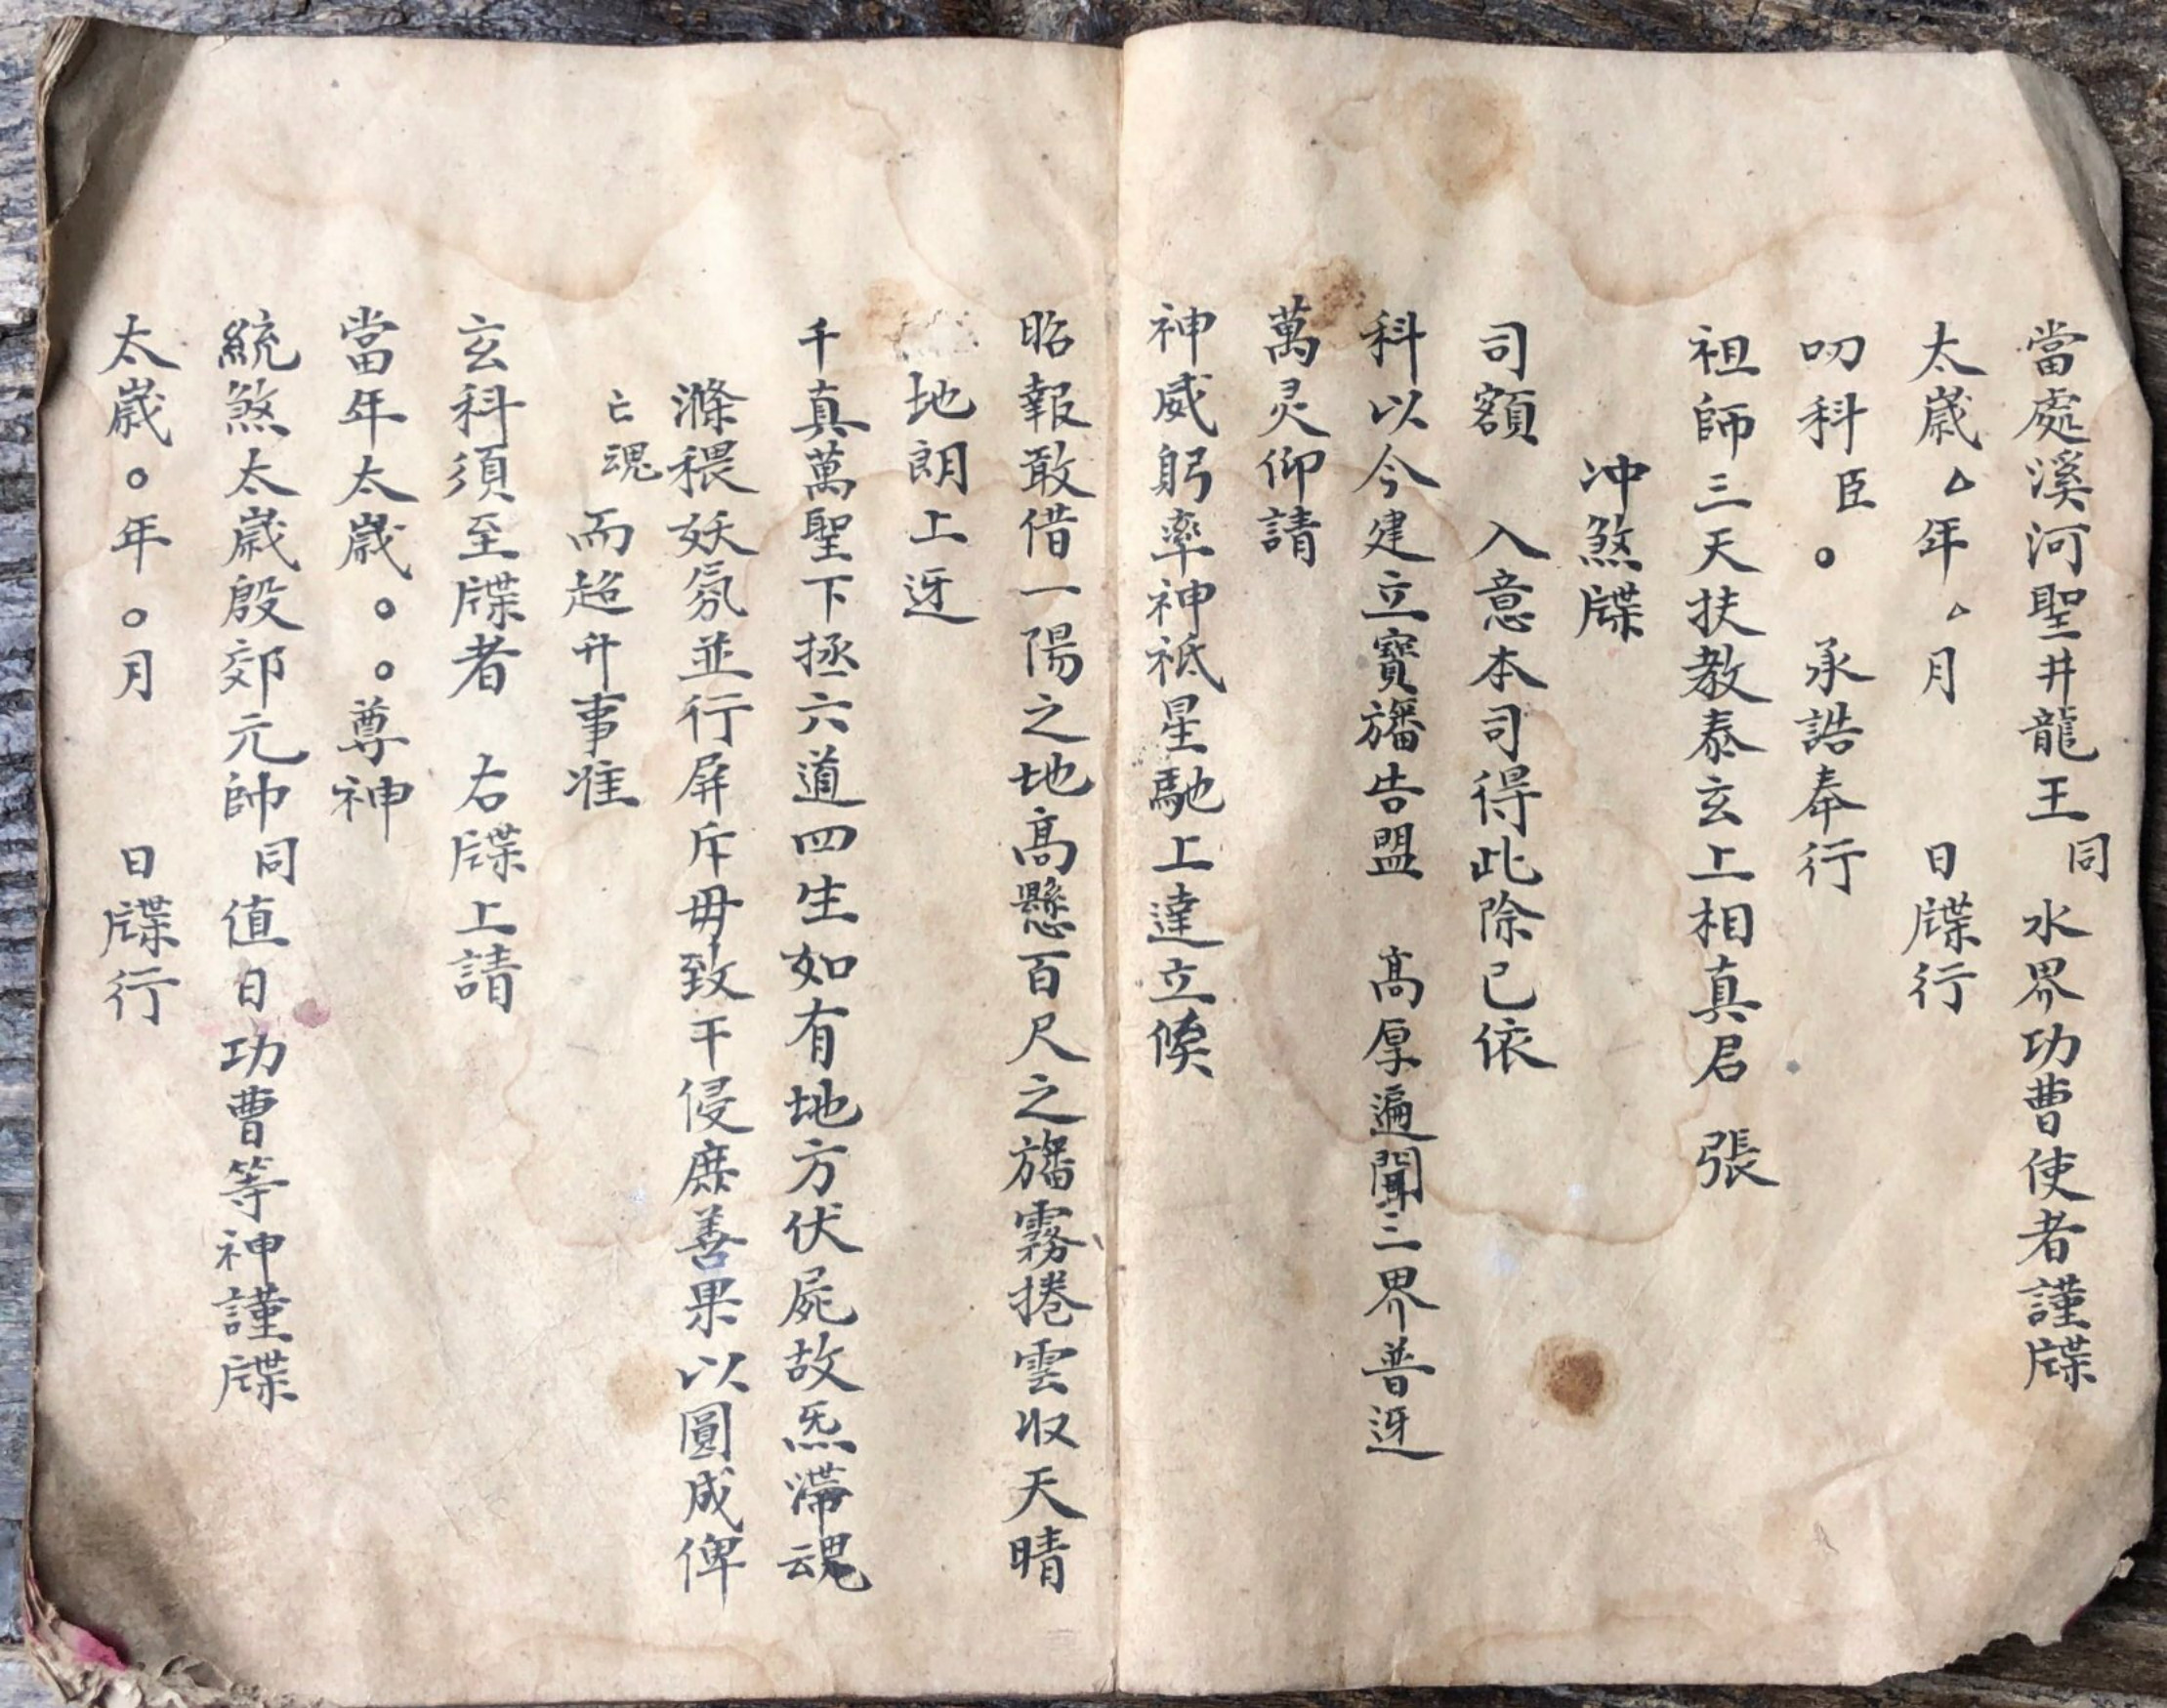 當處溪河聖井龍王同水界功曹使者謹牒
太歲△年△月 日牒行
叨科臣○ 承誥奉行
祖師三天扶教泰玄上相真君 張
冲煞牒
司額 入意本司得此除已依
科以今建立寶旛告盟 高厚遍聞三界普迓
萬灵仰請
神威躬率神祇星馳上達立候
昭報敢借一陽之地高懸百尺之旛霧捲雲收天晴
地朗上迓
千真萬聖下拯六道四生如有地方伏屍故炁滯魂
滌猥妖氛並行屏斥毋致干侵庶善果以圓成俾
亡魂而超升事准
玄科須至牒者 右牒上請
當年太歲○○尊神
統煞太歲殷郊元帥同值日功曹等神謹牒
太歲○年○月 日牒行